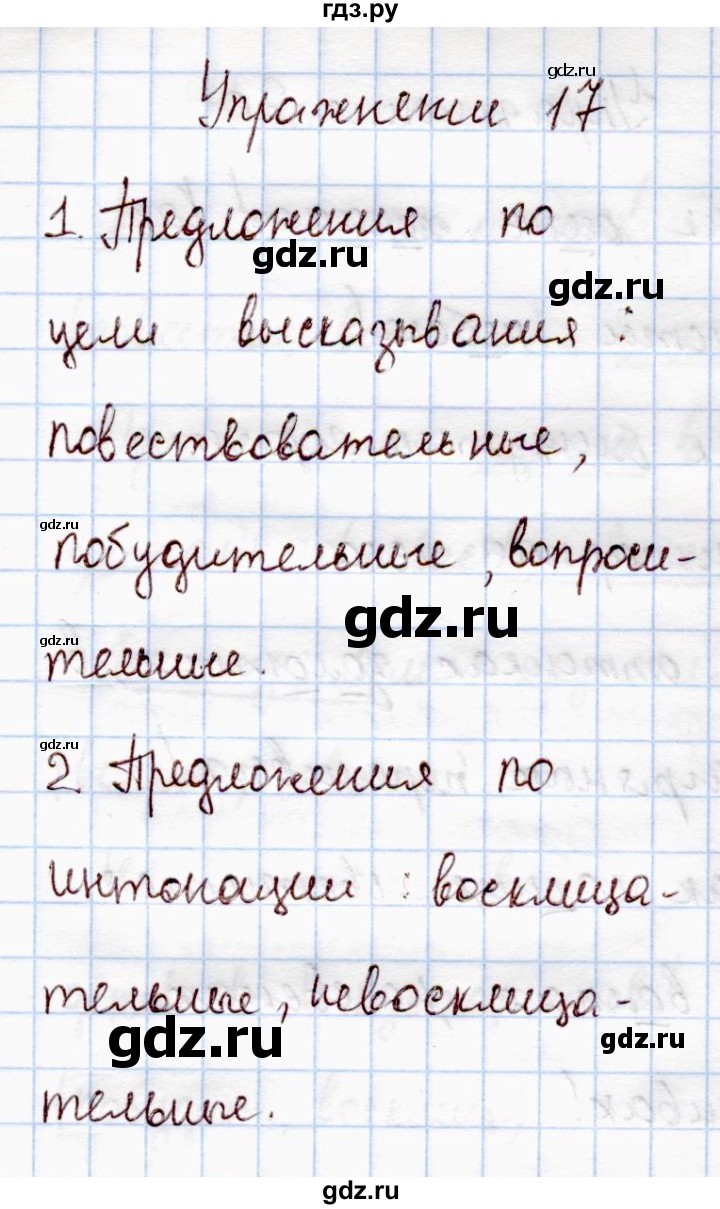 гдз.ру
gdz.ru
Упражнении 17
1. Предложения по
gdz.ru
gdz.ru
цели высказывания:
повествовательные,
gdz.ru
побудительные, вопроси-
gdz.ru
gdz.ru
тельные.
gdz.ru
2. Предложения по
интонации: восклица-
тельные, невосклица-
gdz.ru
gdz.ru
тельные.
gdz.ru